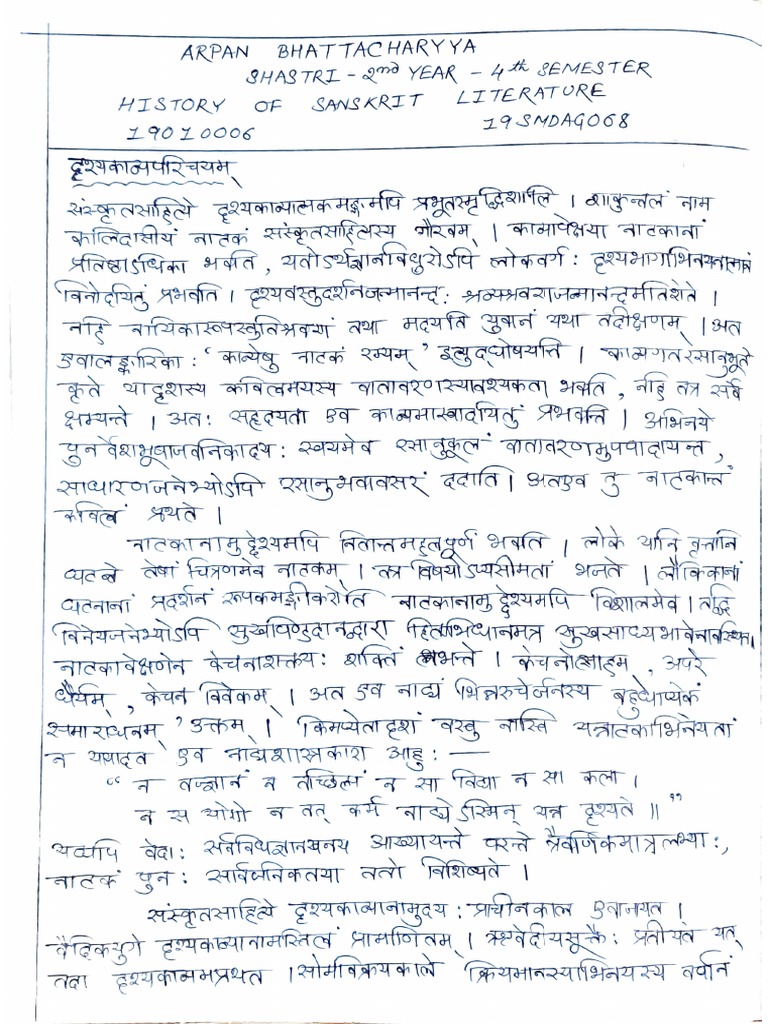 ARPAN BHATTACHARYYA
SHASTRI - 2nd YEAR - 4th SEMESTER
HISTORY OF SANSKRIT LITERATURE
19010006 19SMDAG068
दृश्यकाव्यपरिचयम्
संस्कृतसाहित्ये दृश्यकाव्यात्मकमङ्गमपि प्रभूतसमृद्धिशालि । शाकुन्तलं नाम
कालिदासीयं नाटकं संस्कृतसाहित्यस्य गौरवम् । काव्यापेक्षया नाटकानां
प्रतिष्ठाऽधिका भवति , यतोऽर्थज्ञानविधुरोऽपि लोकवर्गः दृश्यभागाभिनयनात्मानं
विनोदयितुं प्रभवति । दृश्यवस्तुदर्शनजन्मानन्दः श्रव्यश्रवणजन्मानन्दमतिशेते ।
नहि नायिकारूपस्तुतिश्रवणं तथा मदयति युवानं यथा तदीक्षणम् । अत
एवालङ्कारिकाः ‘ काव्येषु नाटकं रम्यम् ’ इत्युद्घोषयन्ति । काव्यगतरसानुभूते
कृते यादृशस्य कवित्वमयस्य वातावरणस्यावश्यकता भवति , नहि तत्र सर्वे
क्षम्यन्ते । अतः सहृदयता एव काव्यमास्वादयितुं प्रभवन्ति । अभिनये
पुनर्वेशभूषाजवनिकादयः स्वयमेव रसानुकूलं वातावरणमुपपादायन्त ,
साधारणजनेभ्योऽपि रसानुभवावसरं ददाति । अतएव तु नाटकान्तं
कवित्वं प्रथते ।
नाटकानामुद्देश्यमपि नितान्तमहत्वपूर्णं भवति । लोके यानि वृत्तानि
घटन्ते तेषां चित्रणमेव नाटकम् । तत्र विषयोऽप्यसीमतां भजते । लौकिकानां
घटनानां प्रदर्शनं रूपकमङ्गीकरोति नाटकानामुद्देश्यमपि विशालमेव । तद्धि
विनेयजनेभ्योऽपि सुखपिण्डदानद्वारा हिताभिधानमत्र सुखसाध्यभावेनावस्थितम् ।
नाटकावेक्षणेन केचनाशक्तयः शक्तिं लभन्ते । केचनोत्साहम् , अपरे
धैर्यम् , केचन विवेकम् । अत एव नाट्यं भिन्नरुचेर्जनस्य बहुधाप्येकं
समाराधनम् ’ उक्तम् । किमप्येतादृशं वस्तु नास्ति यन्नाटकाभिनेयतां
न यायादत एव नाट्यशास्त्रकारा आहुः —
“ न तज्ज्ञानं न तच्छिल्पं न सा विद्या न सा कला ।
न स योगो न तत् कर्म नाट्येऽस्मिन् यन्न दृश्यते ॥ ”
यद्यपि वेदाः आख्यायन्ते परन्ते त्रैवर्णिकमात्रलभ्याः ,
नाटकं पुनः सार्वजनिकतया ततो विशिष्यते ।
संस्कृतसाहित्ये दृश्यकाव्यानामुदयः प्राचीनकाल एवाजायत ।
वैदिकयुगे दृश्यकाव्यानामस्तित्वं प्रामाणितम् । ऋग्वेदीयसूक्तैः प्रतीयते यत्
तदा दृश्यकाव्यमप्रथत । सोमविक्रयकाले क्रियमानस्याभिनयस्य वर्णनं